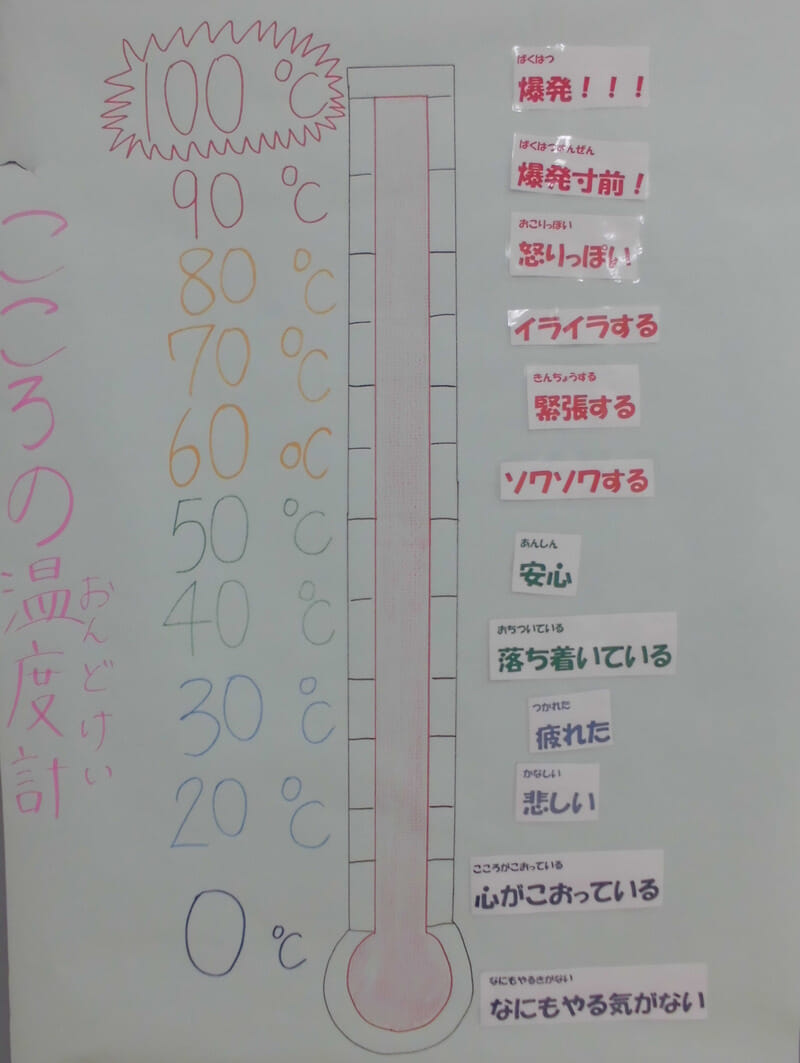 こころの温度計
おんどけい
100℃
90℃
80℃
70℃
60℃
50℃
40℃
30℃
20℃
0℃
ばくはつ
爆発！！！
ばくはつすんぜん
爆発寸前！
おこりっぽい
怒りっぽい
イライラする
きんちょうする
緊張する
ソワソワする
あんしん
安心
おちついている
落ち着いている
つかれた
疲れた
かなしい
悲しい
こころがこおっている
心がこおっている
なにもやるきがない
なにもやる気がない